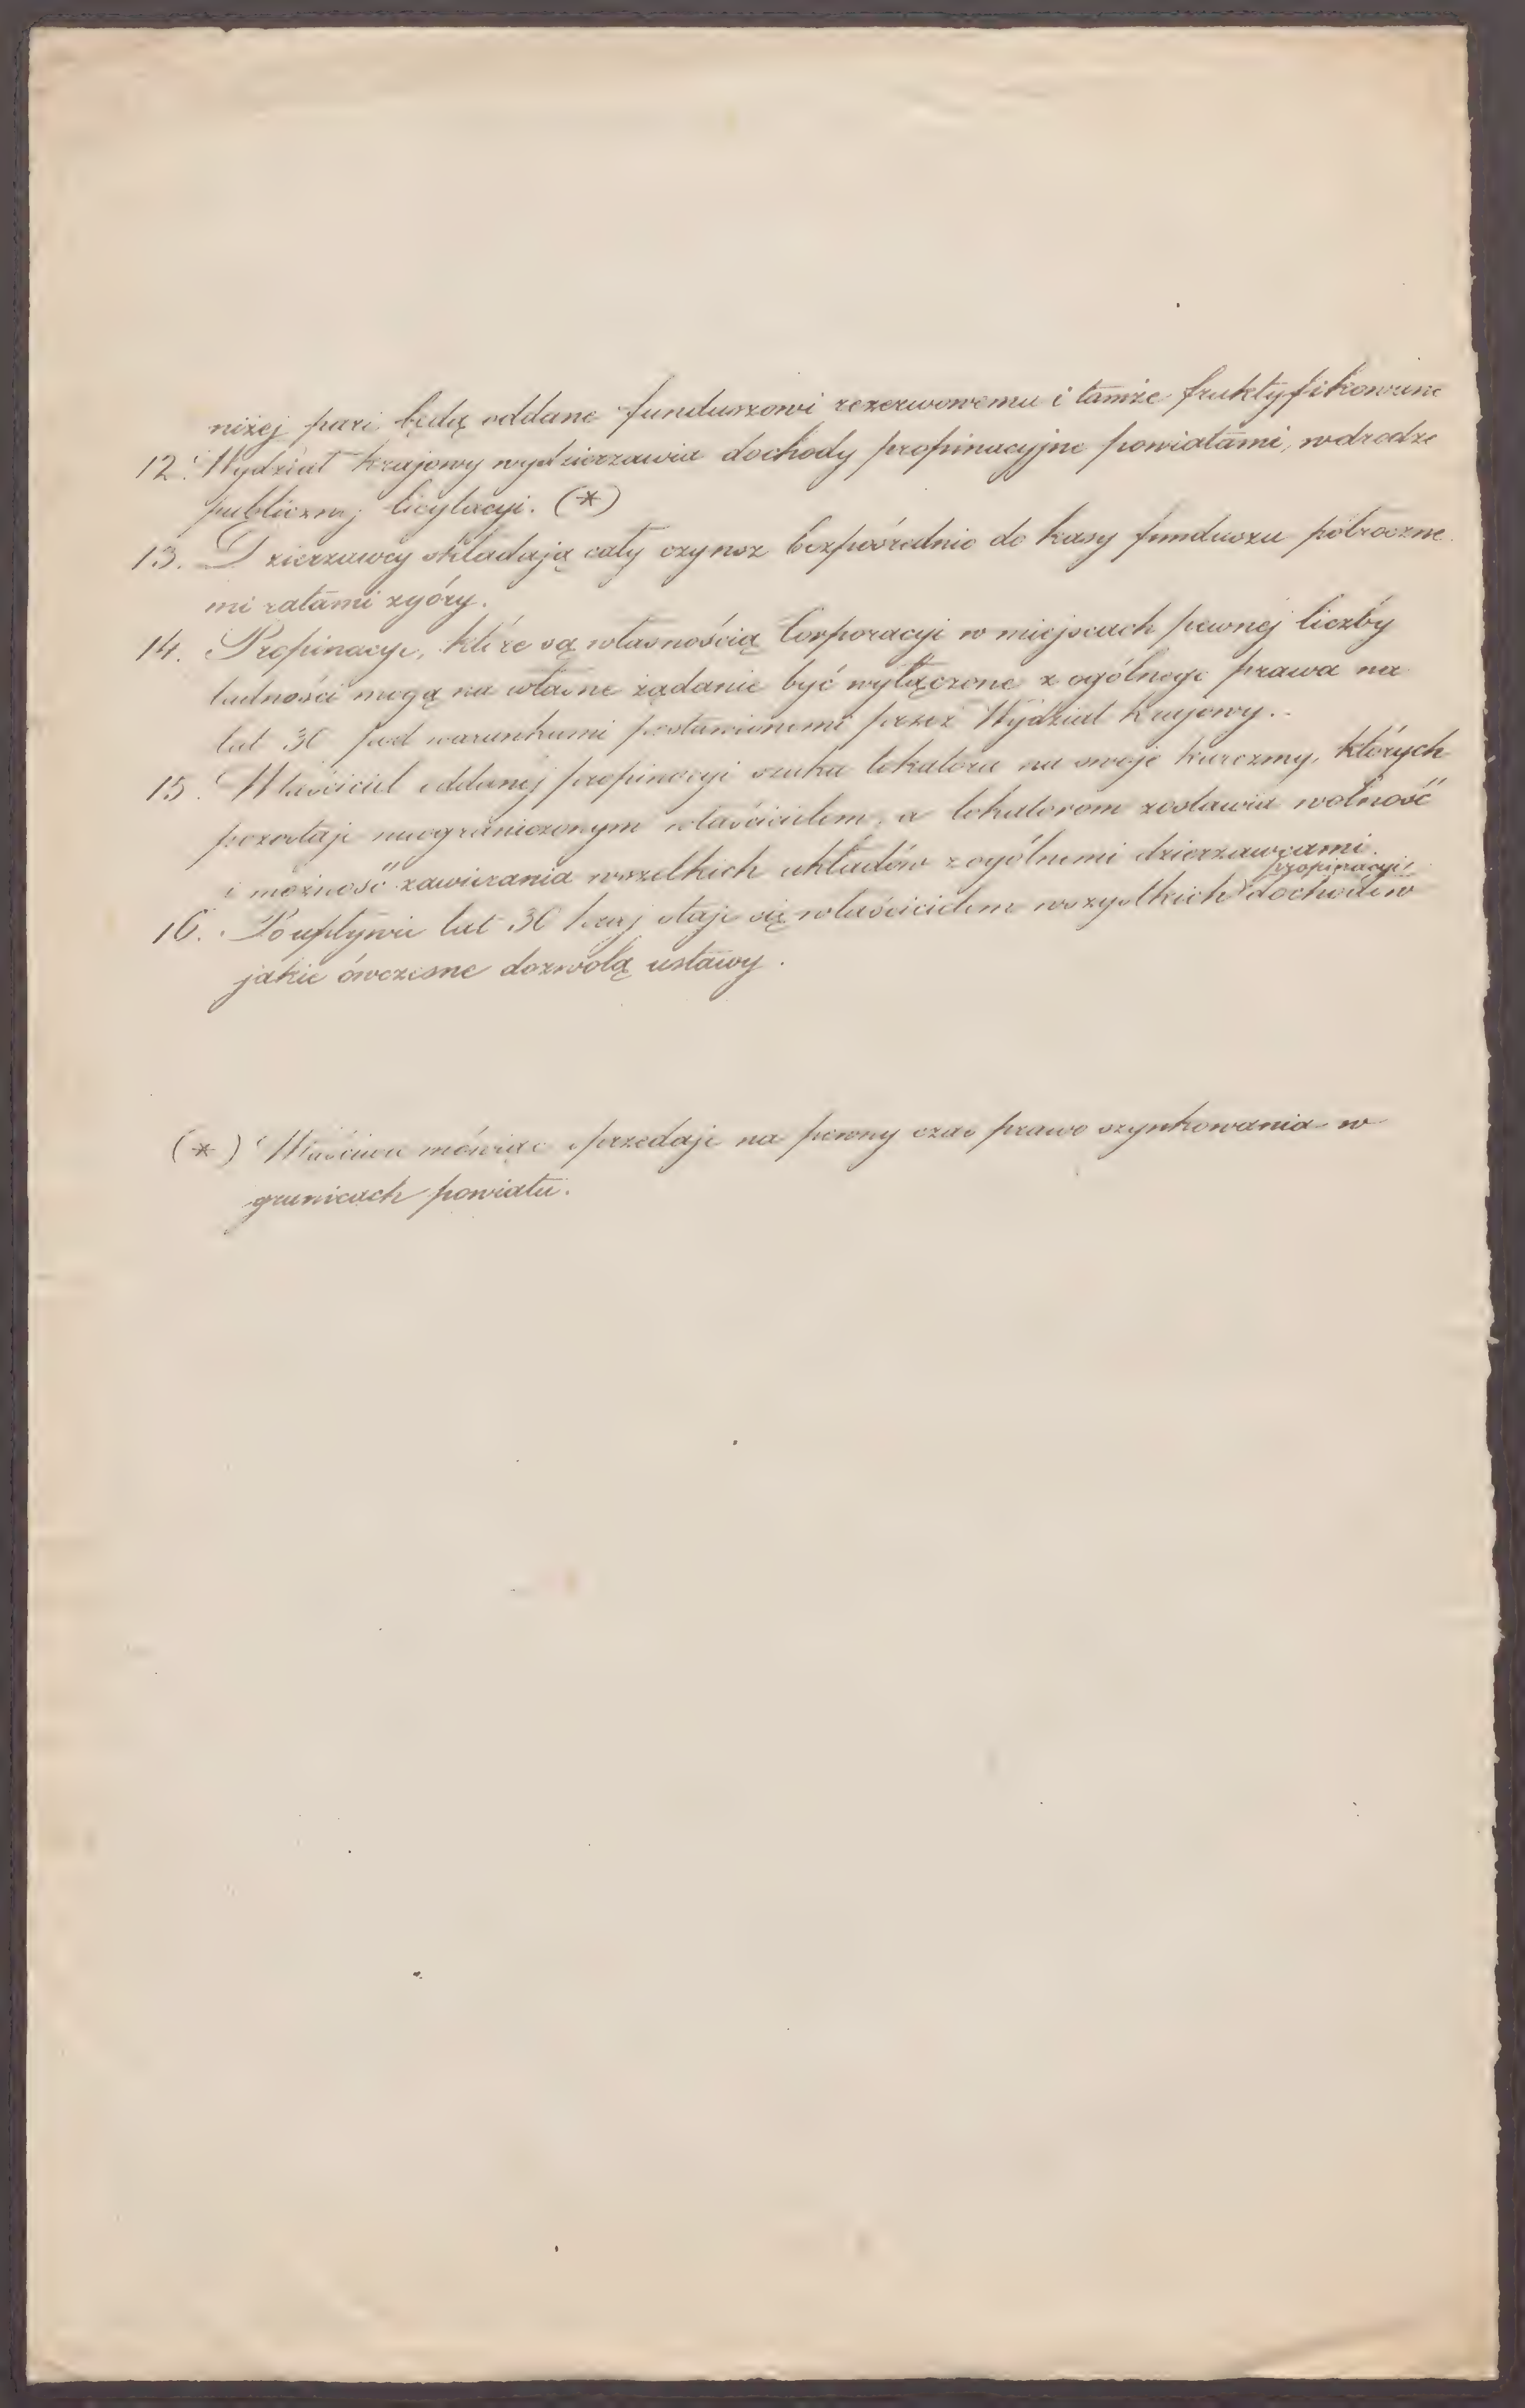 niżej pari będą oddane funduszowi rezerwowemu i tamże fruktyfikowane
12. Wydział krajowy wydzierzawia dochody propinacyjne powiatami, w drodze
publicznej licytacyi. (*)
13. Dzierzawcy składają cały czynsz bezpośrednio do kasy funduszu półroczne
mi ratami zgóry.
14. Propinacye, które są własnością Corporacyi w miejscach pewnej liczby
ludności mogą na własne żądanie być wyłączone z ogólnego prawa na
lat 30 pod warunkami postawionemi przez Wydział krajowy.
15. Właściciel oddanej propinacyi szuka lokatora na swoje karczmy, których
pozostaje nieograniczonym właścicielem, a lokatorom zostawia wolność
i możność zawierania wszelkich układów z ogólnemi dzierzawcami.
propinacyi
16. Po upływie lat 30 kraj staje się właścicielem wszystkich dochodów
jakie ówczesne dozwolą ustawy.
(*) Właściwie mówiąc sprzedaje na pewny czas prawo szynkowania w
granicach powiatu.